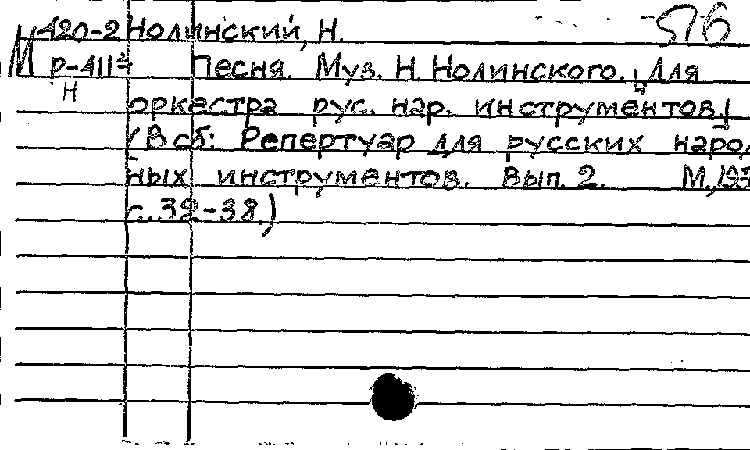 М 420-2 Нолинский, Н. 576
р-411 Песня. Муз. Н. Нолинского. Для
Н
оркестра рус. нар. инструментов.
(В сб: Репертуар для русских народ
ных инструментов. Вып. 2. М.,195
с. 32-38.)